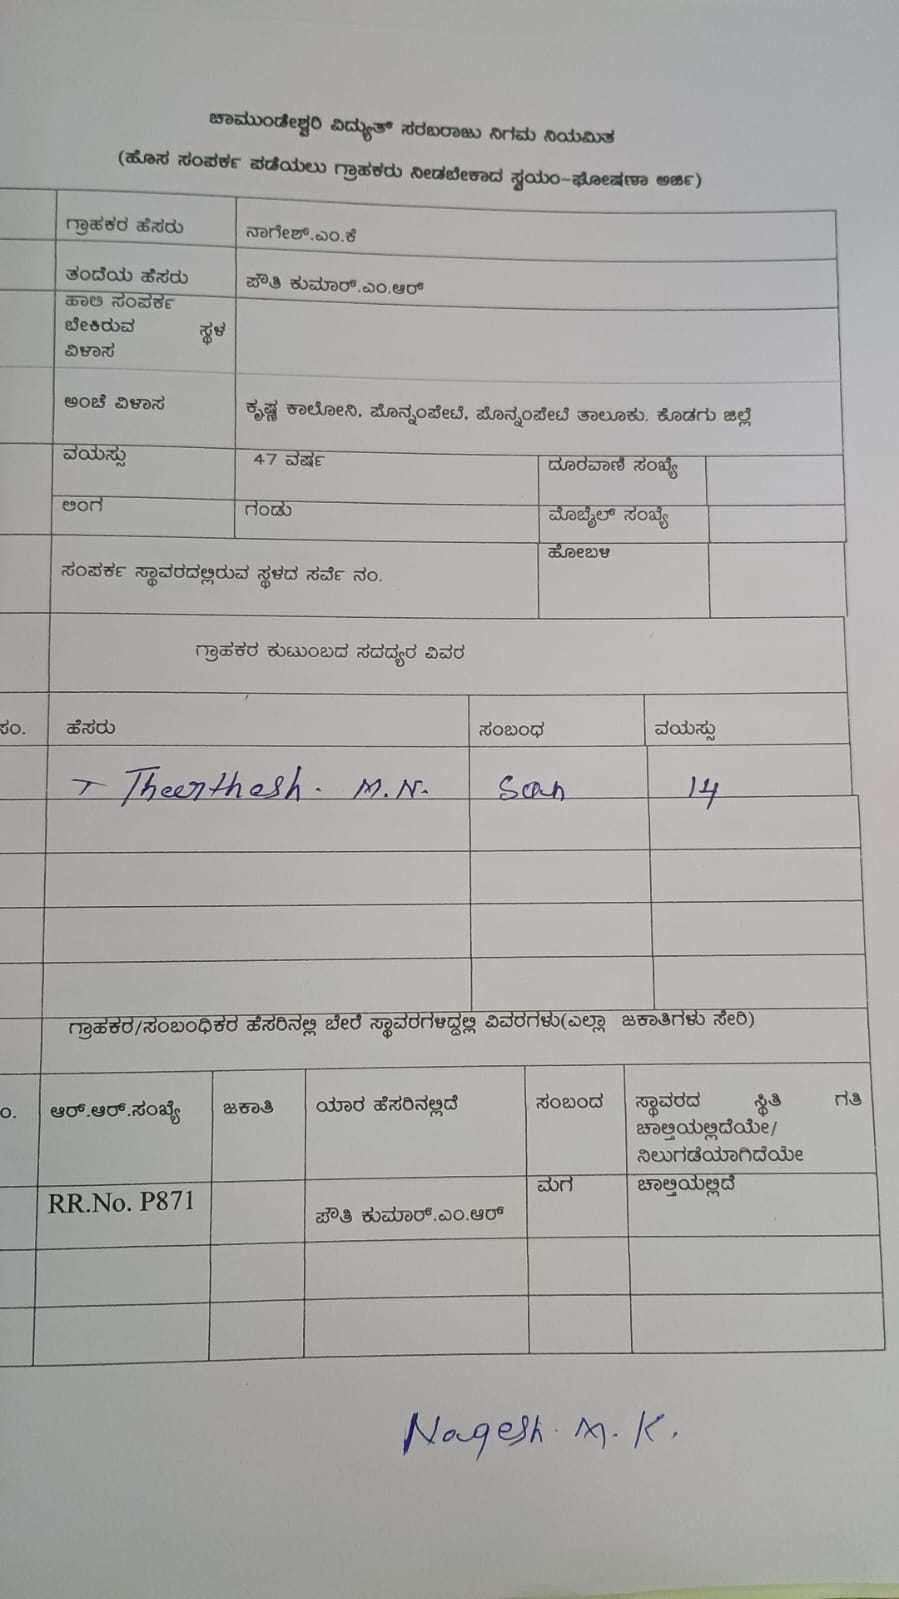 ಚಾಮುಂಡೇಶ್ವರಿ ವಿದ್ಯುತ್ ಸರಬರಾಜು ನಿಗಮ ನಿಯಮಿತ
(ಹೊಸ ಸಂಪರ್ಕ ಪಡೆಯಲು ಗ್ರಾಹಕರು ನೀಡಬೇಕಾದ ಸ್ವಯಂ-ಘೋಷಣಾ ಅರ್ಜಿ)
ಗ್ರಾಹಕರ ಹೆಸರು ನಾಗೇಶ್.ಎಂ.ಕೆ
ತಂದೆಯ ಹೆಸರು ಪೌತಿ ಕುಮಾರ್.ಎಂ.ಆರ್
ಹಾಲಿ ಸಂಪರ್ಕ
ಬೇಕಿರುವ ಸ್ಥಳ
ವಿಳಾಸ
ಅಂಚೆ ವಿಳಾಸ ಕೃಷ್ಣ ಕಾಲೋನಿ, ಪೊನ್ನಂಪೇಟೆ, ಪೊನ್ನಂಪೇಟೆ ತಾಲೂಕು. ಕೊಡಗು ಜಿಲ್ಲೆ
ವಯಸ್ಸು 47 ವರ್ಷ ದೂರವಾಣಿ ಸಂಖ್ಯೆ
ಲಿಂಗ ಗಂಡು ಮೊಬೈಲ್ ಸಂಖ್ಯೆ
ಸಂಪರ್ಕ ಸ್ಥಾವರದಲ್ಲಿರುವ ಸ್ಥಳದ ಸರ್ವೆ ನಂ. ಹೋಬಳಿ
ಗ್ರಾಹಕರ ಕುಟುಂಬದ ಸದದ್ಯರ ವಿವರ
ಸಂ. ಹೆಸರು ಸಂಬಂಧ ವಯಸ್ಸು
Theerthesh. M.N. Son 14
ಗ್ರಾಹಕರ/ಸಂಬಂಧಿಕರ ಹೆಸರಿನಲ್ಲಿ ಬೇರೆ ಸ್ಥಾವರಗಳಿದ್ದಲ್ಲಿ ವಿವರಗಳು(ಎಲ್ಲಾ ಜಕಾತಿಗಳು ಸೇರಿ)
ಂ. ಆರ್.ಆರ್.ಸಂಖ್ಯೆ ಜಕಾತಿ ಯಾರ ಹೆಸರಿನಲ್ಲಿದೆ ಸಂಬಂದ ಸ್ಥಾವರದ ಸ್ಥಿತಿ ಗತಿ
ಚಾಲ್ತಿಯಲ್ಲಿದೆಯೇ/
ನಿಲುಗಡೆಯಾಗಿದೆಯೇ
RR.No. P871 ಪೌತಿ ಕುಮಾರ್.ಎಂ.ಆರ್ ಮಗ ಚಾಲ್ತಿಯಲ್ಲಿದೆ
Nagesh. M. K.